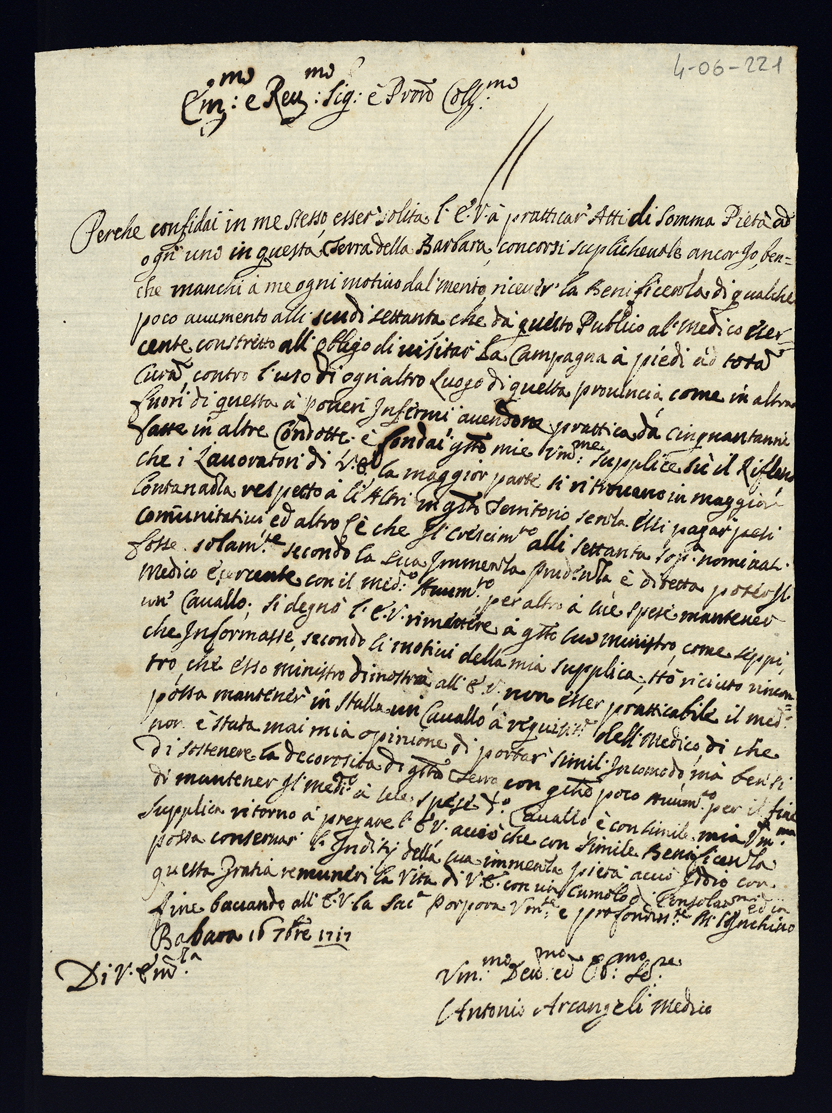 4-06-221
Em:mo e Reu:mo Sig: è Pron̄ Coll:mo
Perche confidai in me stesso esser solita l'E.V. à pratticar Atti di Somma Pietà ad
ogn'uno in questa Terra della Barbara, concorsi suplicheuole ancor Io, ben=
che manchi à me ogni motiuo dal merito riceuer la Beneficenza di qualche
poco aumento alli scudi settanta che dà questo Publico al Medico Eser=
cente constretto all'obligo di uisitar La Campagna à piedi ad tota
Cura, contro l'uso di ogn'altro Luogo di questa prouincia come in altra
fuori di questa à poueri Infermi auendone prattica dà cinquantanni
fatte in altre Condotte. è fondai gsto mie Vm:me supplice sù il
che i Lauoratori di V.E. la maggior parte si ritrouano in maggior
Contananza respetto à l'Altri in gsto Territorio senza Essi pagar pesi
Comunitatiui ed altro
fosse solam:te secondo la sua Immenza Prudenza è diretta poter
Medico Esercente con il med:o Aum:to per altro à sue spese mantener
un Cauallo; si degnò l'E.V. rimettere à gsto suo ministro, come
che Informasse, secondo li motiui della mia supplica,
tro, che esso ministro dimostra all'E.V. non esser pratticabile il med:o
possa mantener in stalla un Cauallo à requisit: dell Medico di che
non è stata mai mia opinione di portar simil'Incomodo, mà bensì
di sostenere la decorosità di gsta Terra con gsto poco Aum:to per il fine
di mantener gl'med:o à sue spese d:o Cauallo è con simile mia Vm:ma
supplica ritorno à pregare l'E.V. acciò che con simile Beneficenza
possa conseruar l'Inditij della sua immenza pietà acciò Iddio con
questa Gratia remuneri la Vita di V.E. con un Cumolo di Consolaz:ni ed in
fine baciando all'E.V. la Sac:a Porpora Vm:te e profondis:te M'Ignchino
Babara 16 7bre 1717
Di V. Em:za
Vm:mo Deu:mo ed Ob:mo Se:re
Antonio Arcangeli Medico